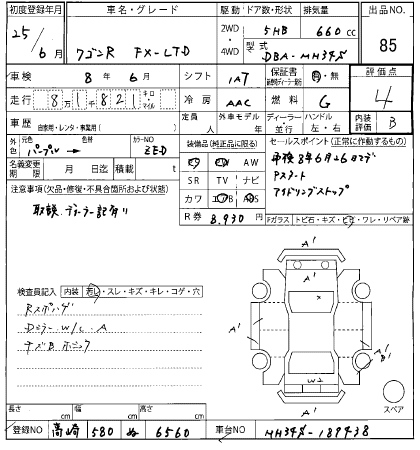 初度登録年月 車名・グレード 駆動 ドア数・形状 排気量 出品NO
25年6月 ワゴンR FX-LTD 2WD・4WD 5HB 660cc 85
型式 DBA-MH34S
車検 8年6月 シフト IAT 保証書 有・無 評価点
走行 8万1821 キロ マイル 冷房 AAC 燃料 G 4
車歴 自家用・レンタ・事業用( ) 定員 人 外車モデル 年 ディーラー・並行 ハンドル 左・右 内装評価 B
外色 元色 パープル → カラーNO ZED
装備品(純正品に限る) セールスポイント(正常に作動するもの)
名義変更期限 月 日迄 積載 t
PS PW AW 車検8年6月26日マデ
SR TV ナビ Pスタート
注意事項(欠品・修復・不具合箇所および状態) カワ エアB ABS アイドリングストップ
取説、ディーラー記有り
R券 8,930円
Fガラス トビ石・キズ・ヒビ・ワレ・リペア跡
A'
A'
検査員記入 内装 若し・スレ・キズ・キレ・コゲ・穴
Dミラー W/C・A
A'
A'
A'
B'
W2
A'
スペア
長さ cm 幅 cm 高さ cm
登録NO 高崎 580 ぬ 6560 車台NO MH34S-189438